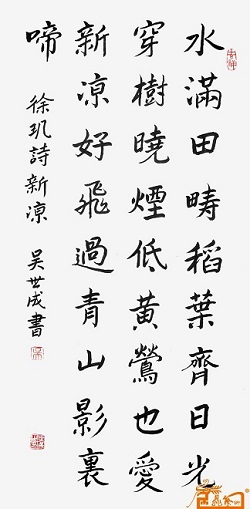 水滿田疇稻葉齊日光
穿樹曉煙低黃鶯也愛
新凉好飛過青山影裏
啼
徐玑詩新凉
吴世成書